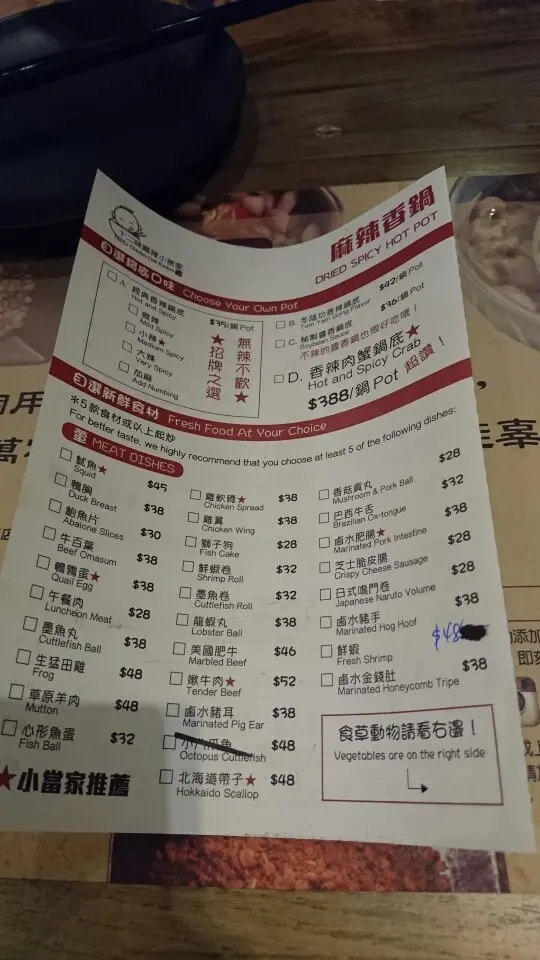 麻辣香鍋
DRIED SPICY HOT POT
自選鍋底口味 Choose Your Own Pot
A. 經典香辣鍋底 $35/鍋 Pot
Hot and Spicy
微辣
Mild Spicy
小辣★
Medium Spicy
大辣
Very Spicy
加麻
Add Numbing
★招牌之選
無辣不歡★
B. 冬陰功香辣鍋底 $42/鍋 Pot
Tom Yam Gung Flavor
C. 秘製醬香鍋底 $36/鍋 Pot
Soybean Sauce
不辣的醬香鍋也很好吃哦！
D. 香辣肉蟹鍋底★
Hot and Spicy Crab
$388/鍋 Pot 超讚！
自選新鮮食材 Fresh Food At Your Choice
*5款食材或以上起炒
For better taste, we highly recommend that you choose at least 5 of the following dishes:
葷 MEAT DISHES
魷魚★ $45
Squid
鴨胸 $38
Duck Breast
鮑魚片 $30
Abalone Slices
牛百葉 $38
Beef Omasum
鵪鶉蛋★ $38
Quail Egg
午餐肉 $28
Luncheon Meat
墨魚丸 $38
Cuttlefish Ball
生猛田雞 $48
Frog
草原羊肉 $48
Mutton
心形魚蛋 $32
Fish Ball
雞軟骨★ $38
Chicken Spread
雞翼 $38
Chicken Wing
獅子狗 $28
Fish Cake
鮮蝦卷 $32
Shrimp Roll
墨魚卷 $32
Cuttlefish Roll
龍蝦丸 $38
Lobster Ball
美國肥牛 $46
Marbled Beef
嫩牛肉★ $52
Tender Beef
鹵水豬耳 $38
Marinated Pig Ear
小八爪魚 $48
Octopus Cuttlefish
北海道帶子★ $48
Hokkaido Scallop
香菇貢丸 $28
Mushroom & Pork Ball
巴西牛舌 $32
Brazilian Ox-tongue
鹵水肥腸★ $38
Marinated Pork Intestine
芝士脆皮腸 $28
Crispy Cheese Sausage
日式鳴門卷 $28
Japanese Naruto Volume
鹵水豬手 $38
Marinated Hog Hoof
鮮蝦 $48
Fresh Shrimp
鹵水金錢肚 $38
Marinated Honeycomb Tripe
食草動物請看右邊！
Vegetables are on the right side
★小當家推薦